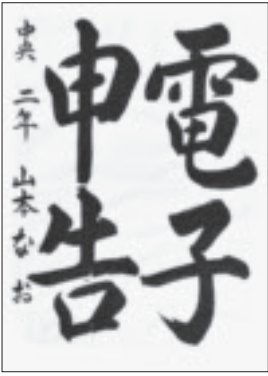 電子
申告
中央 二年 山本なお